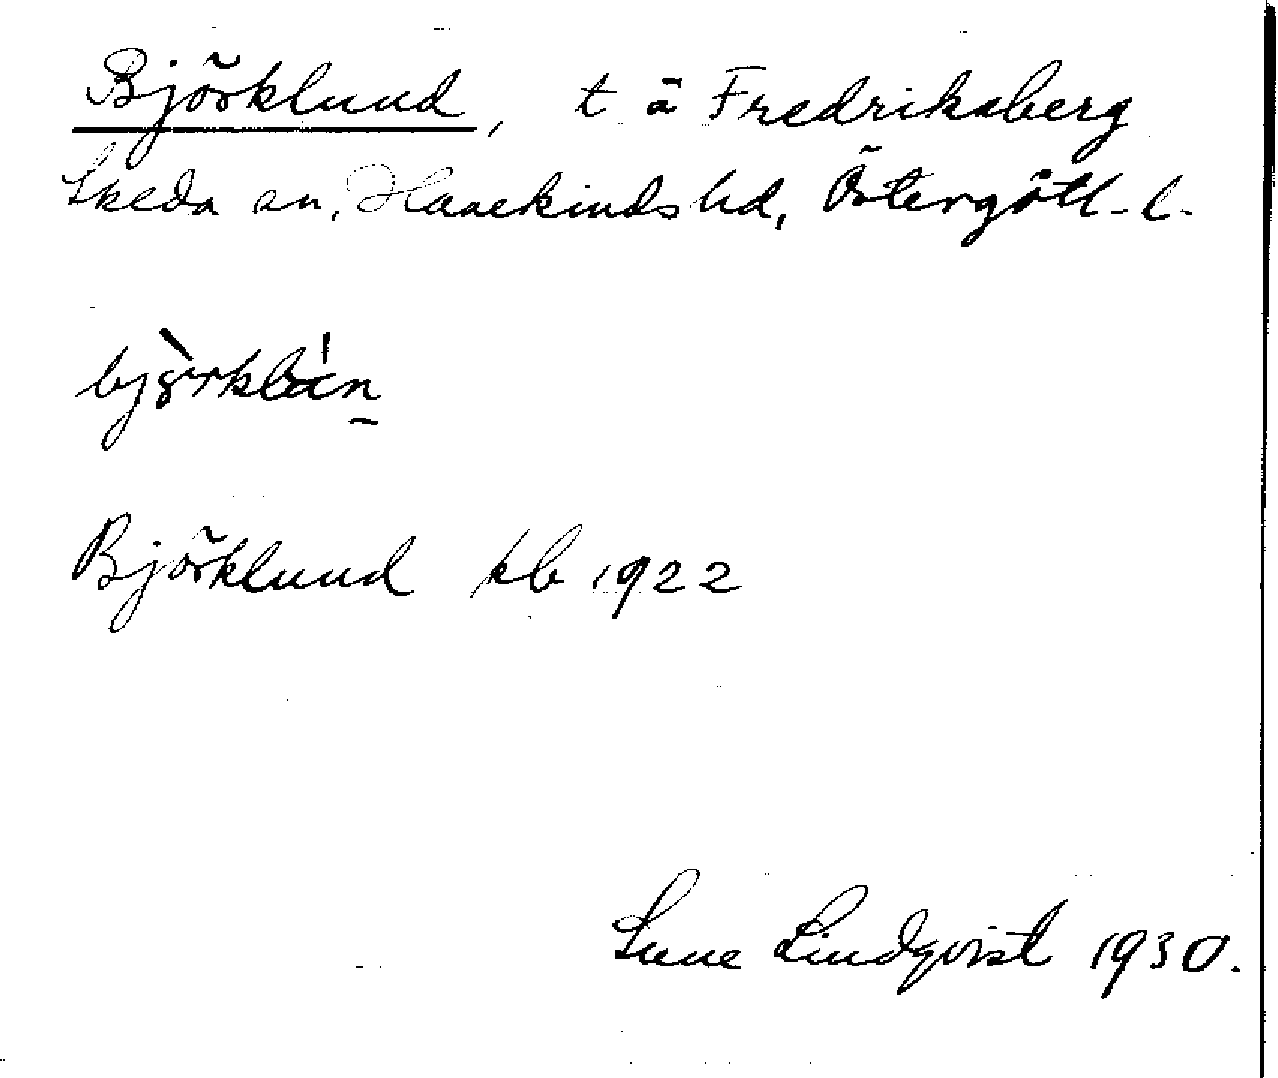 Björklund, t ä Fredriksberg
Skeda sn, Hanekinds hd, Östergötl. l.
Björklund kb 1922
Sune Lindqvist 1930.